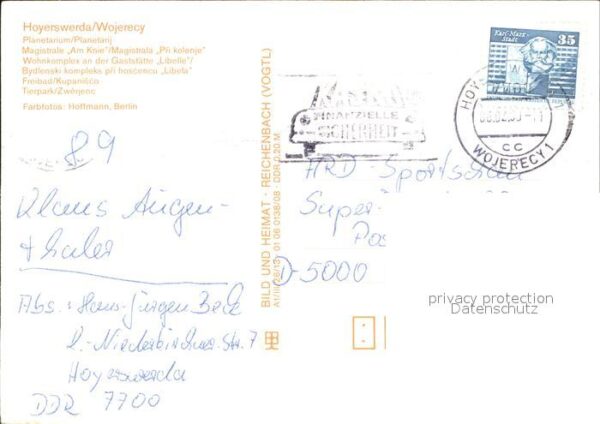 Hoyerswerda/Wojerecy
Planetarium/Planetarij
Magistrale „Am Knie"/Magistrala „Při kolenje"
Wohnkomplex an der Gaststätte „Libelle"/
Bydlenski kompleks při hosćencu „Libela"
Freibad/Kupanišćo
Tierpark/Zwěrjenc
Farbfotos: Hoffmann, Berlin
89
Klaus Augen-
thaler
Abs.: Hans-Jürgen Beck
Str. 7
Hoyerswerda
DDR 7700
BILD UND HEIMAT · REICHENBACH (VOGTL)
A1/III/26/13 01 06 0138/08 · DDR 0,20 M
FINANZIELLE
SICHERHEIT
Karl-Marx-
Stadt
35
DDR
HOY
cc
WOJERECY 1
ARD-Sportschau
Super-
Pos
D-5000
privacy protection
Datenschutz